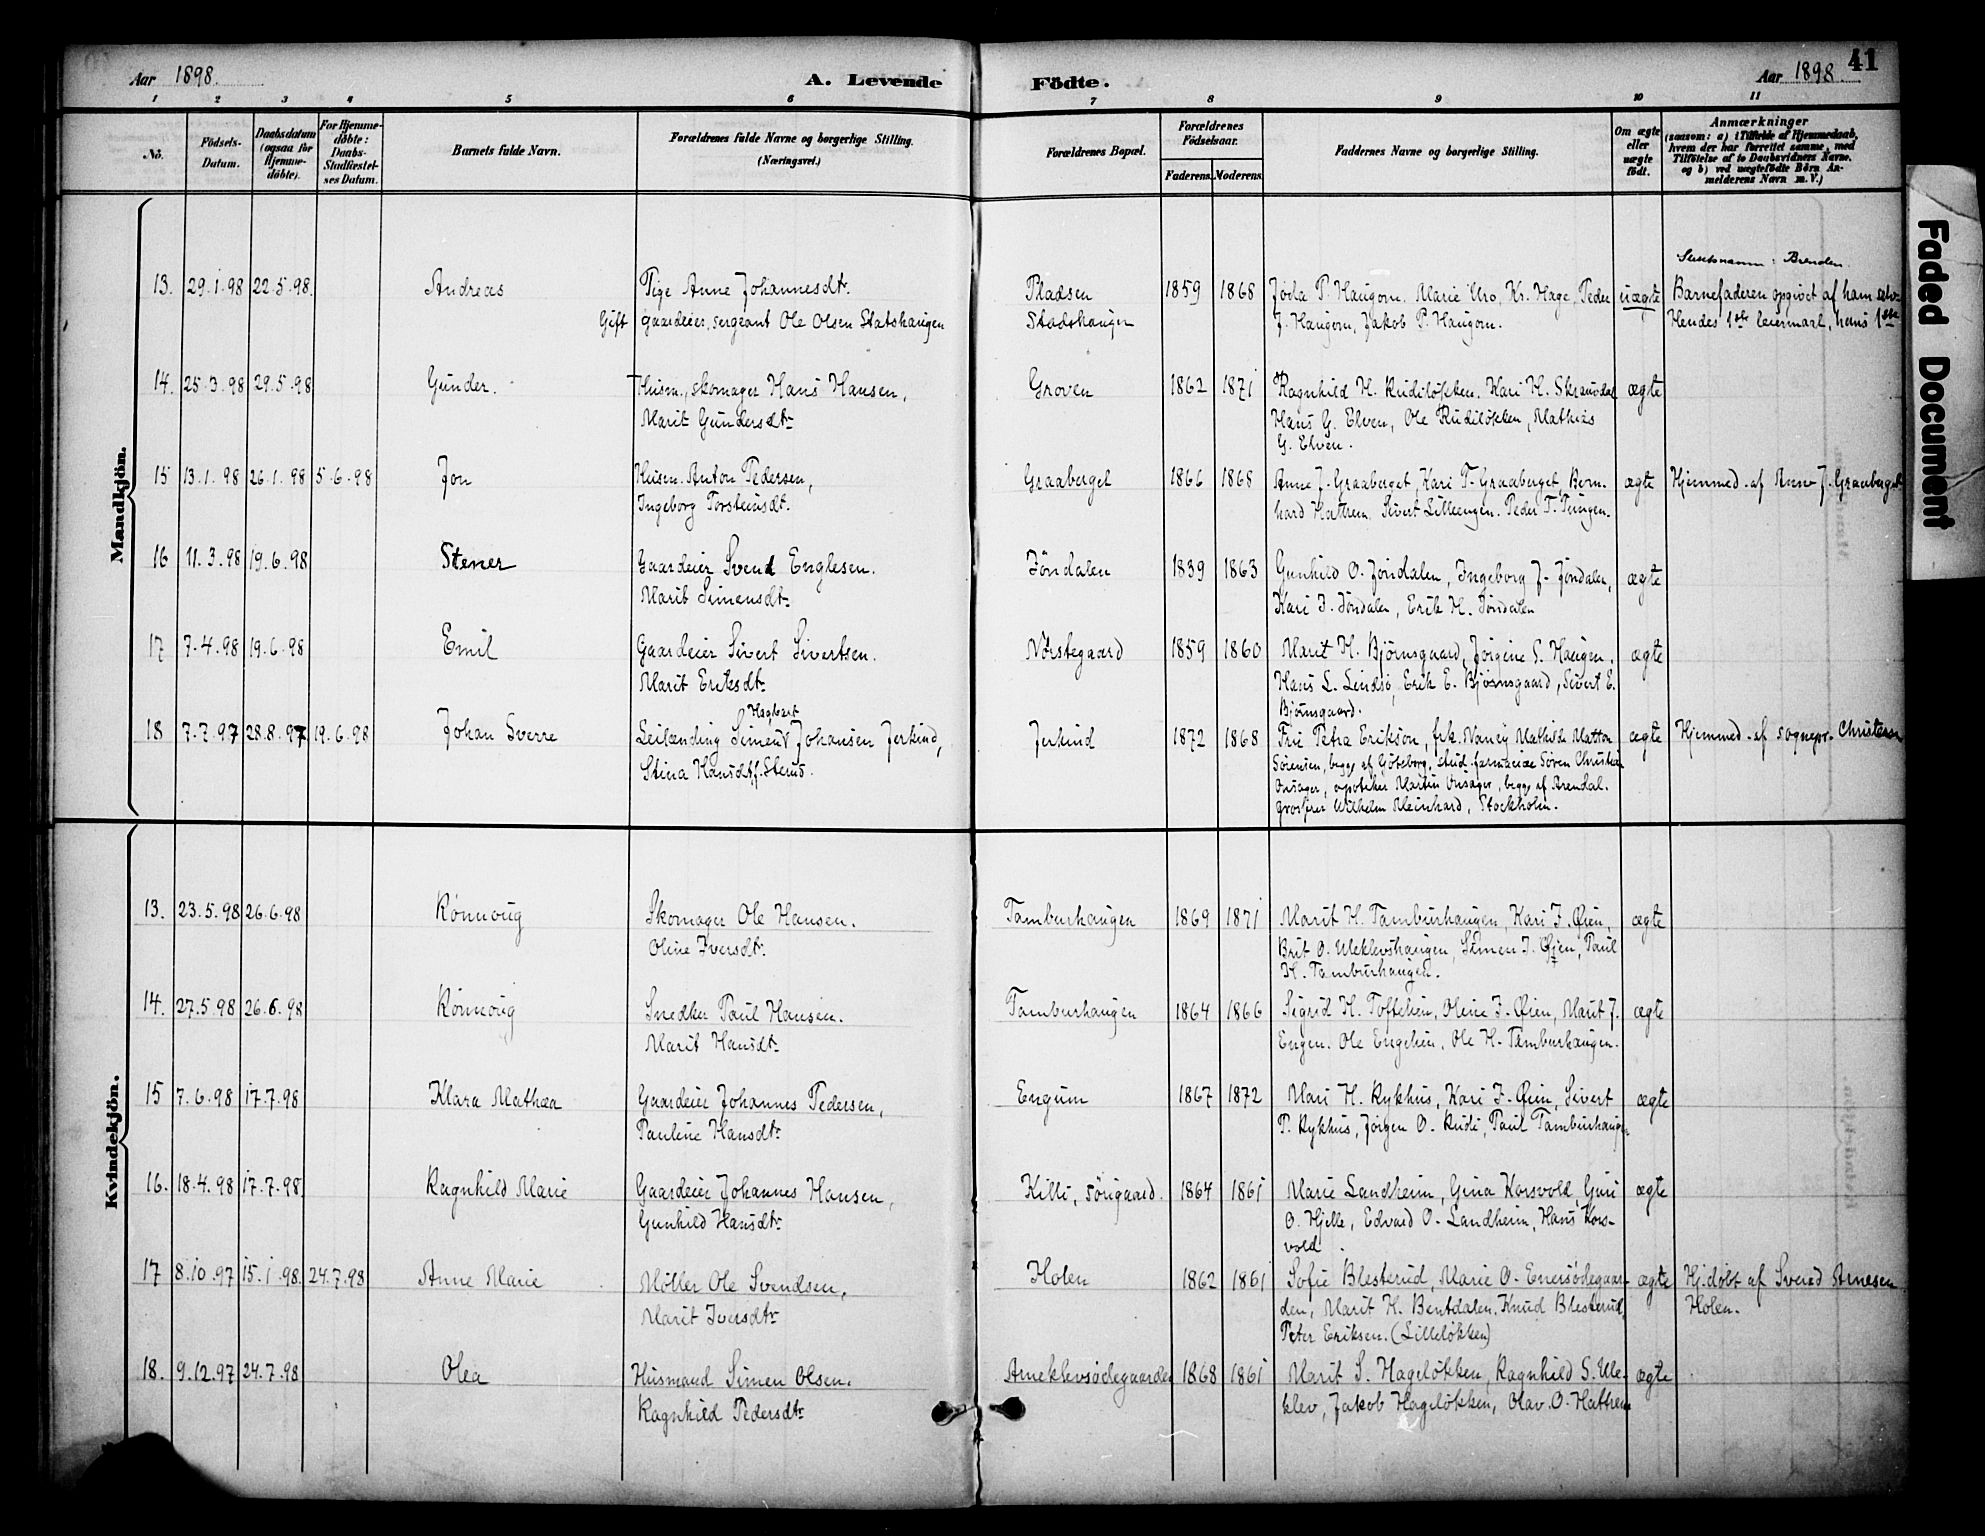 Aar 1898. A. Levende Födte. Aar 1898 41
1 2 3 4 5 6 7 8 9 10 11
No.
Födsels-
Datum.
Daabsdatum
(ogsaa for
Hjemme-
döbte).
For Hjemme-
döbte:
Daabs-
Stadfæstel-
ses Datum.
Barnets fulde Navn.
Forældrenes fulde Navne og borgerlige Stilling.
(Næringsvei.)
Forældrenes Bopæl.
Forældrenes
Födselsaar.
Faderens. Moderens.
Faddernes Navne og borgerlige Stilling.
Om ægte
eller
uægte
födt.
Anmærkninger
(saasom: a) i Tilfælde af Hjemmedaab,
hvem der har forrettet samme, med
Tilföielse af to Daabsvidners Navne,
og b) ved uægtefödte Börn An-
melderens Navn m. V.)
Mandkjön.
Brenden.
13. 29.1.98 22.5.98. Andreas Pige Anne Johannesdtr. Pladsen 1859 1868 P. Haugom. Marie Uro, Kr. Hage, Peder uægte Barnefaderen opgivet af ham selv.
Gift gaardeier, sergeant Ole Olsen Statshaugen Stadshaugen J. Haugom, Jakob P. Haugom. Hendes 1ste leiermaal, hans 1ste
14. 25.3.98 29.5.98 Gunder. Husm., skomager Hans Hansen, Groven 1862 1871 Ragnhild H. Rudiløkken. Kari H. ægte
Marit Gundersdtr. Hans G. Elven, Ole Rudiløkken, Mathias
G. Elven.
15 13.1.98 26.1.98 5.6.98 Jon Husm. Anton Pedersen, Graaberget 1866 1868 Anne J. Graaberget, Kari T. Graaberget, Bern- ægte Hjemmed. af J. Graaberget
Ingeborg Torsteinsdt. hard Hattrem, Sivert Lilleengen. Peder T.
16 11.3.98 19.6.98 Stener Gaardeier Svend Englesen. Jöndalen 1839 1863 Gunhild O. Jöndalen, Ingeborg J. Jöndalen, ægte
Marit Simensdt. Kari J. Jöndalen, Erik H. Jöndalen
17 7.4.98 19.6.98 Emil Gaardeier Sivert Sivertsen. Nørstegaard 1859 1860 Marit H. Bjørnsgaard, Jørgine S. Haugen. ægte
Marit Eriksdtr. Hans L. Lindsø, Erik E. Bjørnsgaard, Sivert E.
Hagbart Bjørnsgaard.
18 7.7.97 28.8.97 19.6.98 Johan Sverre Leilænding Simen Johansen Jerkind, Jerkind 1872 1868 Frue Petra Erikson, frk. Nancy Mathilde ægte Hjemmed. af sognepr. Christensen
Stina Hansdt. f. Sørensen, begge af Göteborg, stud. farmaciæ Sören Christian
Onsager, apotheker Martin Onsager, begge af Arendal.
grosserer Wilhelm Meinhard, Stockholm.
Kvindekjön.
13. 23.5.98 26.6.98 Rönnoug Skomager Ole Hansen. Tamburhaugen 1869 1871 Marit H. Tamburhaugen, Kari J. Øien, ægte
Oline Iversdt. Brit O. Uleklevshaugen, Simen J. Øjen, Paul
H. Tamburhaugen.
14. 27.5.98 26.6.98 Rönnoug Snedker Paul Hansen. Tamburhaugen 1864 1866 Sigrid H. Toftehen, Oline J. Øien, Marit J. ægte
Marit Hansdt. Engen. Ole Engehen, Ole H. Tamburhaugen.
15 7.6.98 17.7.98 Klara Mathea Gaardeier Johannes Pedersen, Engum 1867 1872 Mari H. Rykhus, Kari J. Øien, Sivert ægte
Pauline Hansdt. P. Rykhus, Jørgen O. Rudi, Paul Tamburhaugen
16. 18.4.98 17.7.98 Ragnhild Marie Gaardeier Johannes Hansen, Killi, sörigaard. 1864 1861 Marie Landheim, Gina Korsvold, Guri ægte
Gunhild Hansdt. O. Hjelle, Edvard O. Landheim, Hans Kors-
vold.
17 8.10.97 15.1.98. 24.7.98 Anne Marie Møller Ole Svendsen, Holen 1862 1861 Sofie Blesterud, Marie O. Enersødegaar- ægte Hj.døbt af Svend Arnesen
Marit Iversdt. den, Marit H. Bentdalen, Knud Blesterud, Holen.
Peter Eriksen. (Lilleløkken)
18. 9.12.97 24.7.98 Olea Husmand Simen Olsen. Arneklevsødegaarden 1868 1861 Marit S. Hageløkken, Ragnhild S. Ule- ægte
Ragnhild Pedersdtr. klev, Jakob Hageløkken, Olav O. Hattrem
Faded Document